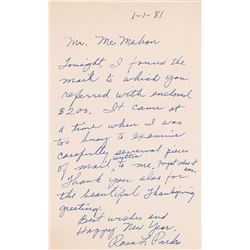 1-1-81
Mr. Mc Mahon
Tonight, I found the
mail to which you
referred with enclosed
$2.00. It came at
a time when I was
too busy to examine
carefully several pieces
of mail written to me, most about
Thank you also for
the beautiful Thanksgiving
greeting.
Best wishes and
Happy New Year,
Rosa L. Parks